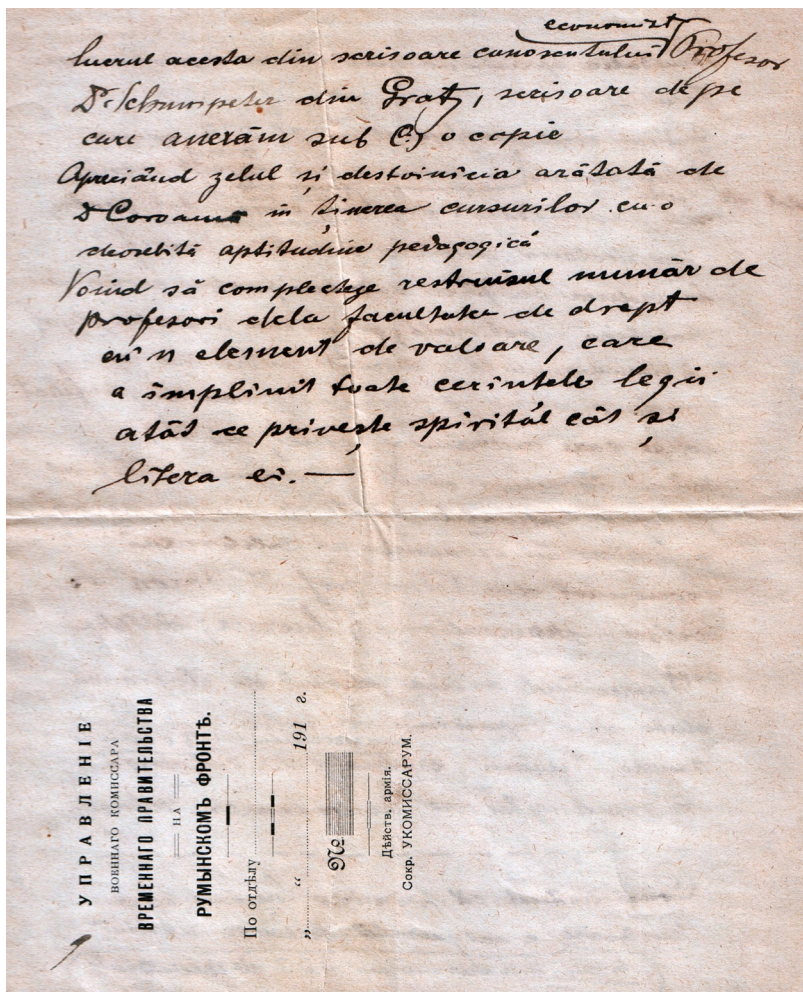 economist
lucrul acesta din scrisoare cunoscutului Profesor
Dr Schumpeter din Gratz, scrisoare depe
care anexăm sub C.) o copie
Apreciând zelul și destoinicia arătată de
Dr Coroamă în ținerea cursurilor cu o
deosebită aptitudine pedagogică
Voind să complectege restrînsul număr de
profesori dela facultatea de drept
cu n element de valoare, care
a împlinit toate cerințele legii
atât ce privește spiritul cât și
litera ei. —
УПРАВЛЕНІЕ
ВОЕННАГО КОМИССАРА
ВРЕМЕННАГО ПРАВИТЕЛЬСТВА
НА
РУМЫНСКОМЪ ФРОНТѢ.
По отдѣлу
„ “ 191 г.
№
Дѣйств. армія.
Сокр. УКОМИССАРУМ.